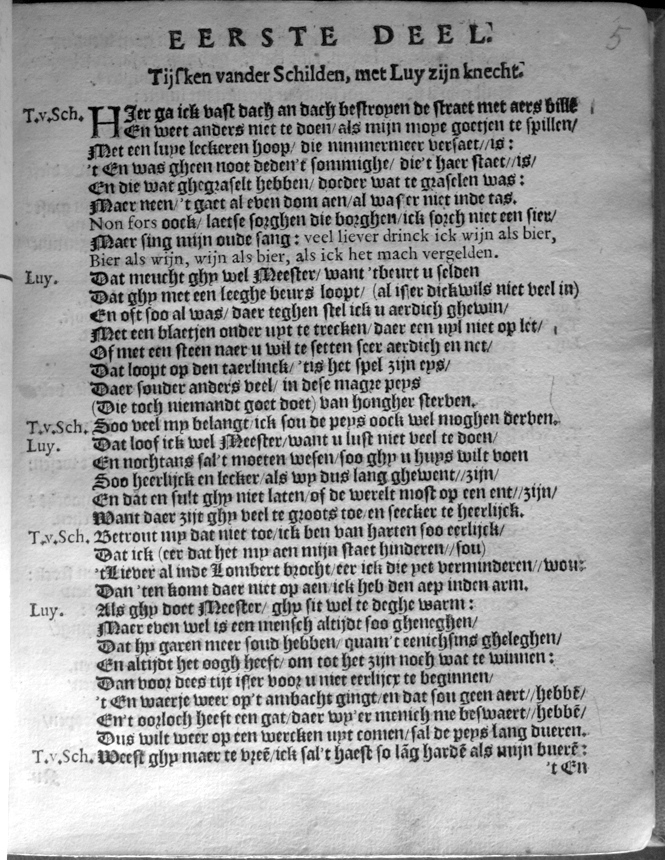 EERSTE DEEL.
5
Tijsken vander Schilden, met Luy zijn knecht.
T.v.Sch. HIer ga ick vast dach an dach bestroyen de straet met aers bille
En weet anders niet te doen/ als mijn moye goetjen te spillen/
Met een luye leckeren hoop/ die nimmermeer versaet//is:
't En was gheen noot deden't sommighe/ die't haer staet//is/
En die wat ghegraselt hebben/ doeder wat te graselen was:
Maer neen/ 't gaet al even dom aen/ al wasser niet inde tas.
Non fors oock/ laetse sorghen die borghen/ ick sorch niet een sier/
Maer sing mijn oude sang: veel liever drinck ick wijn als bier,
Bier als wijn, wijn als bier, als ick het mach vergelden.
Luy. Dat meucht ghy wel Meester/ want 'tbeurt u selden
Dat ghy met een leeghe beurs loopt/ (al isser dickwils niet veel in)
En oft soo al was/ daer teghen stel ick u aerdich ghewin/
Met een blaetjen onder uyt te trecken/ daer een uyl niet op let/
Of met een steen naer u wil te setten seer aerdich en net/
Dat loopt op den taerlinck/ 'tis het spel zijn eys/
Daer sonder anders veel/ in dese magre peys
(Die toch niemandt goet doet) van hongher sterven.
T.v.Sch. Soo veel my belangt/ ick sou de peys oock wel moghen derven.
Luy. Dat loof ick wel Meester/ want u lust niet veel te doen/
En nochtans sal't moeten wesen/ soo ghy u huys wilt voen
Soo heerlijck en lecker/ als wy dus lang ghewent//zijn/
En dat en sult ghy niet laten/ of de werelt most op een ent//zijn/
Want daer zijt ghy veel te groots toe/ en seecker te heerlijck.
T.v.Sch. Betrout my dat niet toe/ ick ben van harten soo eerlijck/
Dat ick (eer dat het my aen mijn staet hinderen//sou)
't Liever al inde Lombert brocht/ eer ick die yet verminderen//wou:
Dan 'ten komt daer niet op aen/ ick heb den aep inden arm.
Luy. Als ghy doet Meester/ ghy sit wel te deghe warm:
Maer even wel is een mensch altijdt soo gheneghen/
Dat hy garen meer soud hebben/ quam't eenichsins gheleghen/
En altijdt het oogh heeft/ om tot het zijn noch wat te winnen:
Dan voor dees tijt isser voor u niet eerlijcx te beginnen/
't En waerje weer op't ambacht gingt/ en dat sou geen aert//hebbē/
En't oorloch heeft een gat/ daer wy'er menich me beswaert//hebbē/
Dus wilt weer op een wercken uyt comen/ sal de peys lang dueren.
T.v.Sch. Weest ghy maer te vreē/ ick sal't haest so lāg hardē als mijn buerē:
't En